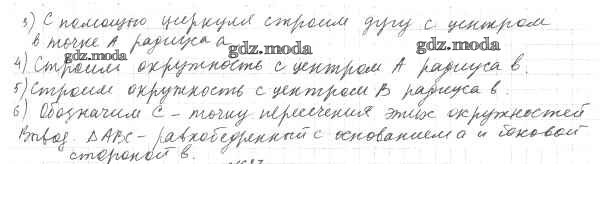 3) С помощью циркуля строим дугу с центром
в точке А радиуса а.
gdz.moda gdz.moda gdz.moda
4) Строим окружность с центром А радиуса в.
5) Строим окружность с центром В радиуса в.
6) Обозначим С - точку пересечения этих окружностей
Вывод. ΔАВС - равнобедренный с основанием а и боковой
стороной в.